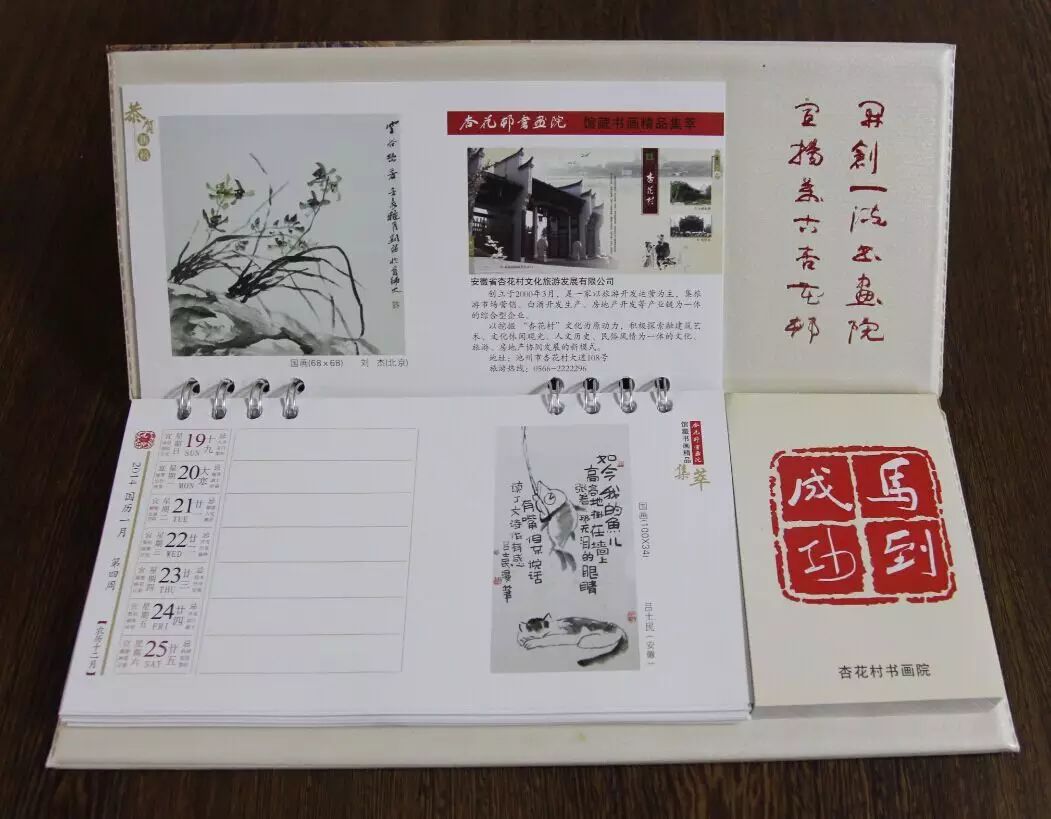 恭贺
杏花邨書画院 馆藏书画精品集萃
杏花村
安徽省杏花村文化旅游发展有限公司
创立于2000年3月,是一家以旅游开发运营为主,集旅
游市场营销、白酒开发生产、房地产开发等产业链为一体
的综合型企业。
以挖掘“杏花村”文化为原动力,积极探索融建筑艺
术、文化休闲观光、人文历史、民俗风情为一体的文化、
旅游、房地产协同发展的新模式。
地址:池州市杏花村大道108号
旅游热线:0566-2222296
国画(68×68) 刘 杰(北京)
開創一流书画院
宣揚萬古杏花邨
2014 国历一月 第四周
【农历十二月】
宜 星期日 19 SUN 十九 忌
宜 星期一 20 MON 大寒 忌
宜 星期二 21 TUE 廿一 忌
宜 星期三 22 WED 廿二 忌
宜 星期四 23 THU 廿三 忌
宜 星期五 24 FRI 廿四 忌
宜 星期六 25 SAT 廿五 忌
杏花邨書画院
馆藏书画精品
集萃
如今我的魚儿
高高地挂在墙上
张着 无泪的眼睛
有嘴但不说话
读丁文诗作有感
吕士民
国画(100X34)
吕士民(安徽)
馬到
成功
杏花村书画院